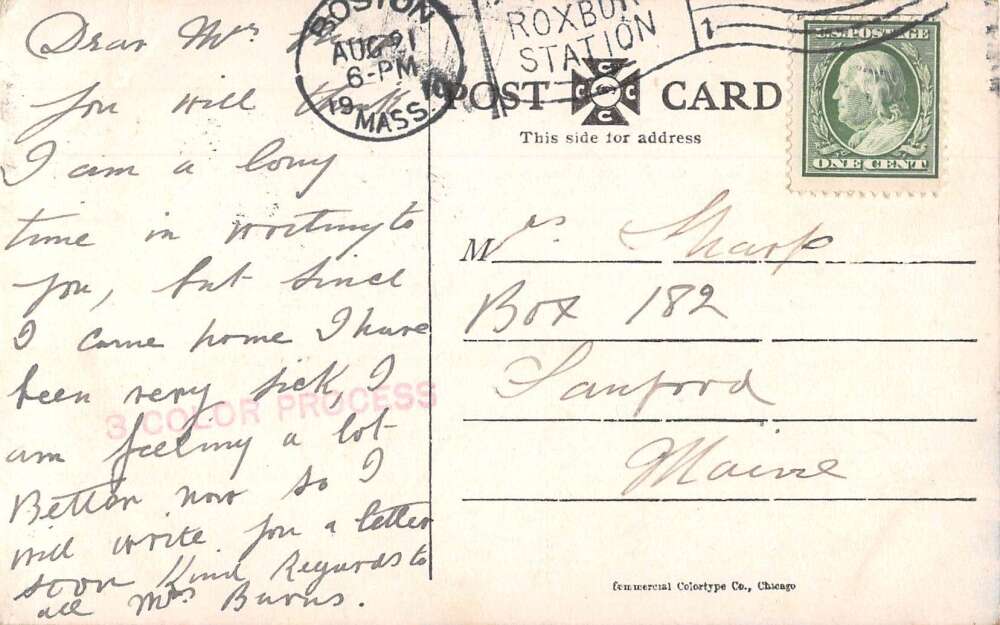 Dear Mrs
you will think
I am a long
time in writing to
you, but since
I came home I have
been very sick, I
am feeling a lot
Better now so I
will write you a letter
soon Kind Regards to
all Mrs Burns.
3 COLOR PROCESS
BOSTON
AUG 21
6-PM
1910
MASS.
ROXBURY
STATION
1
POST CARD
C C C C
This side for address
U.S. POSTAGE
ONE CENT
Mrs. Sharp
Box 182
Sanford
Maine
Commercial Colortype Co., Chicago